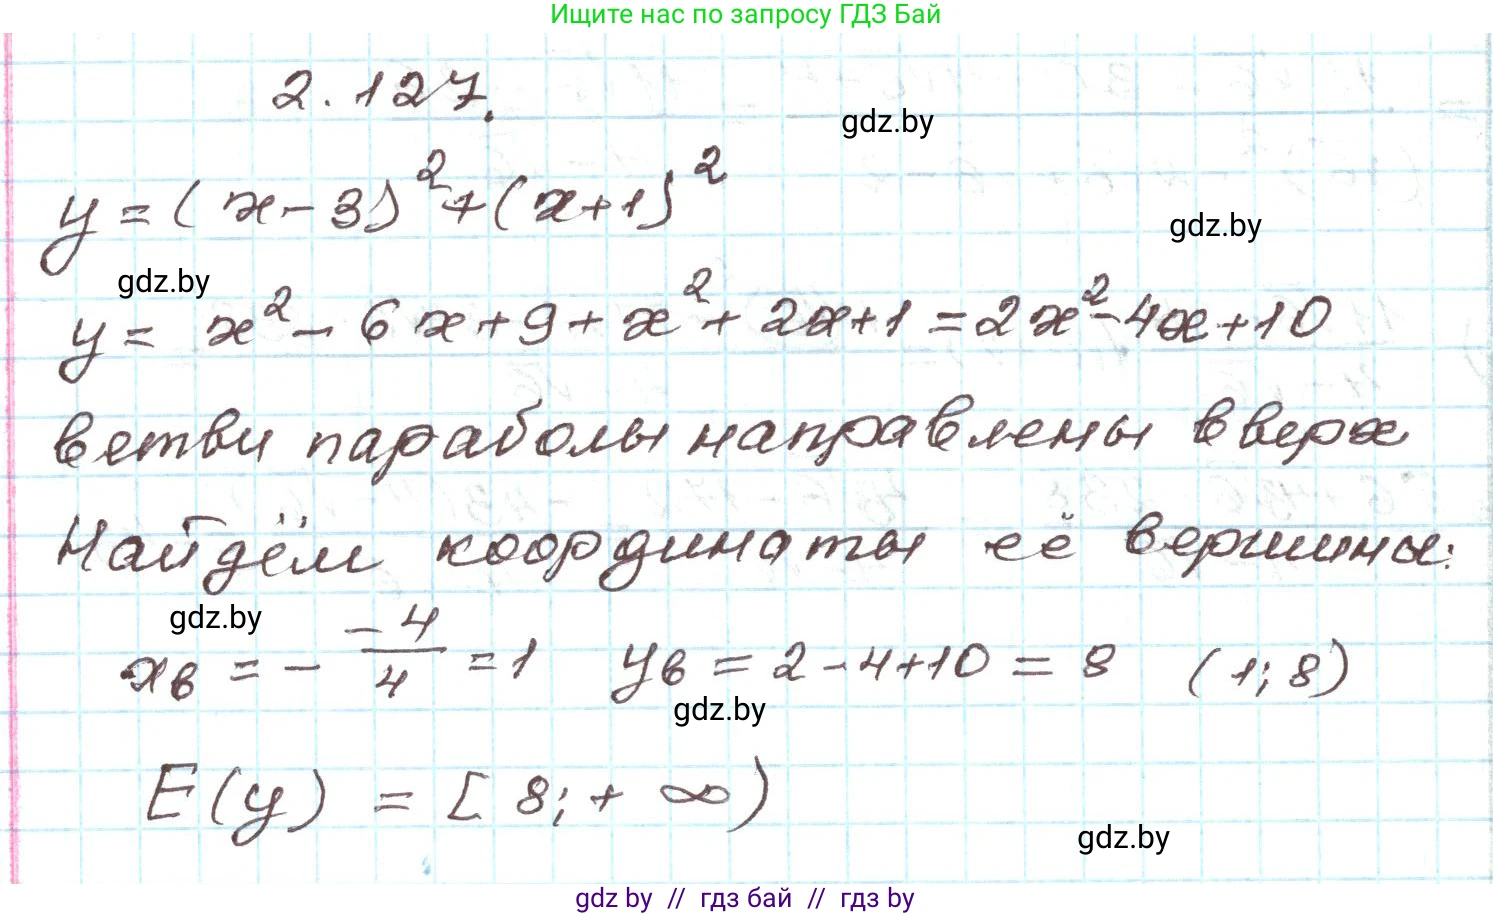 Ищите нас по запросу ГДЗ Бай
2.127.
gdz.by
y = (x - 3)² + (x+1)²
gdz.by
gdz.by
y = x² - 6x + 9 + x² + 2x + 1 = 2x² - 4x + 10
ветви параболы направлены вверх
Найдём координаты её вершины:
gdz.by
xв = - -4/4 = 1   yв = 2 - 4 + 10 = 8   (1; 8)
gdz.by
E(y) = [8; + ∞)
gdz.by
gdz by // гдз бай // гдз by